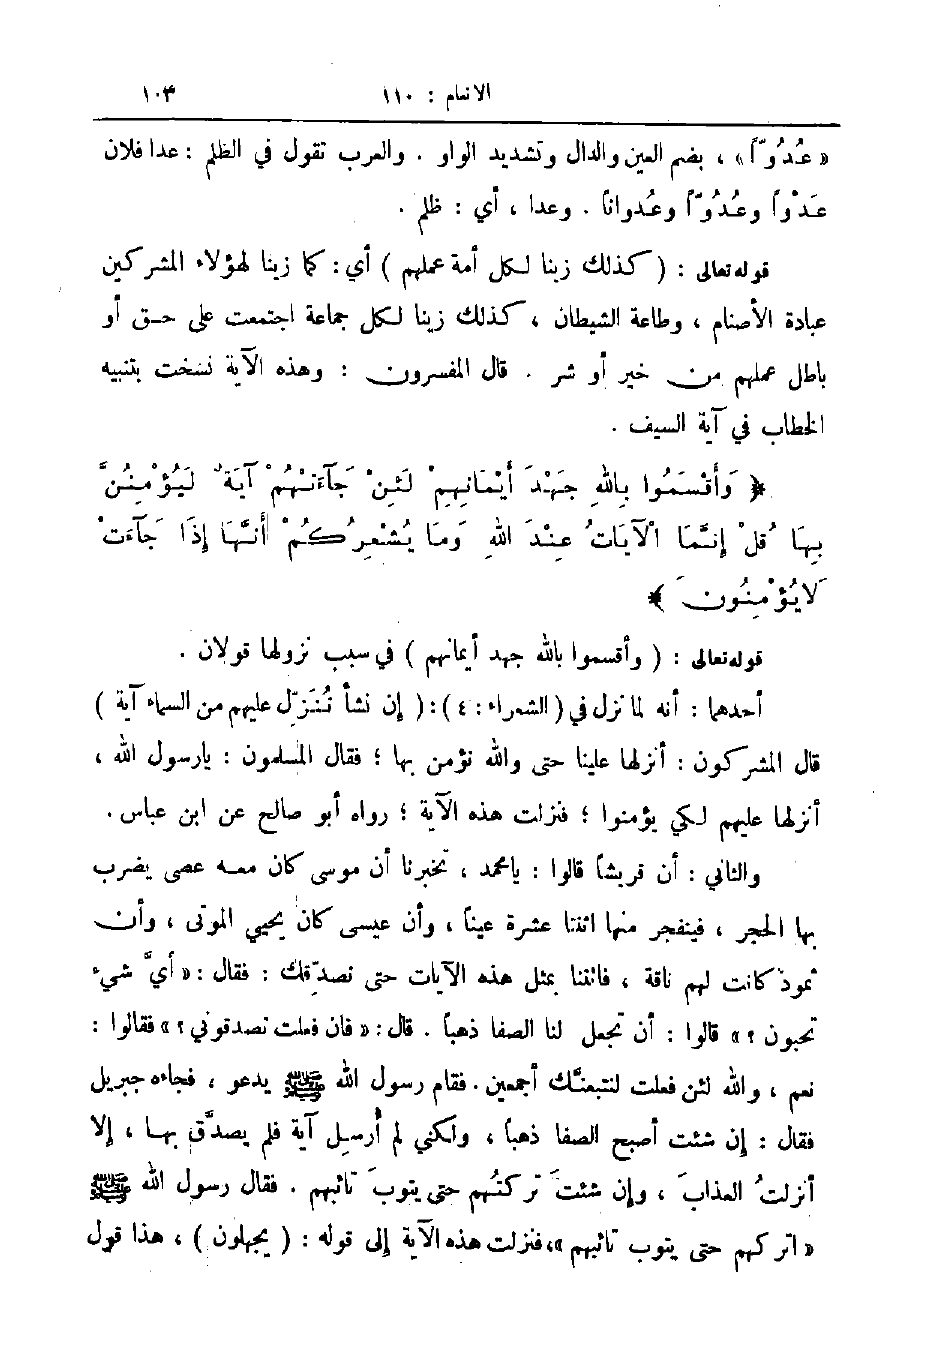 الانعام : ١١٠ ١٠٣
« عُدُوّاً » ، بضم العين والدال وتشديد الواو . والعرب تقول في الظلم : عدا فلان
عَدْواً وعُدُوّاً وعُدواناً . وعدا ، أي : ظلم .
قوله تعالى : ( كذلك زينا لكل أمة عملهم ) أي : كما زينا لهؤلاء المشركين
عبادة الأصنام ، وطاعة الشيطان ، كذلك زينا لكل جماعة اجتمعت على حق أو
باطل عملهم من خير أو شر . قال المفسرون : وهذه الآية نسخت بتنبيه
الخطاب في آية السيف .
﴿ وَأَقْسَمُوا بِاللهِ جَهْدَ أَيْمَانِهِمْ لَئِنْ جَآءَتْهُمْ آيَةٌ لَيُؤْمِنُنَّ
بِهَا قُلْ إِنَّمَا الْآيَاتُ عِنْدَ اللهِ وَمَا يُشْعِرُكُمْ أَنَّهَا إِذَا جَآءَتْ
لَايُؤْمِنُونَ ﴾
قوله تعالى : ( وأقسموا بالله جهد أيمانهم ) في سبب نزولها قولان .
أحدهما : أنه لما نزل في ( الشعراء : ٤ ) : ( إن نشأ نُنَزّل عليهم من السماء آية )
قال المشركون : أنزلها علينا حتى والله نؤمن بها ؛ فقال المسلمون : يارسول الله ،
أنزلها عليهم لكي يؤمنوا ؛ فنزلت هذه الآية ؛ رواه أبو صالح عن ابن عباس .
والثاني : أن قريشاً قالوا : يامحمد ، تخبرنا أن موسى كان معه عصى يضرب
بها الحجر ، فينفجر منها اثنتا عشرة عيناً ، وأن عيسى كان يحيي الموتى ، وأن
ثمود كانت لهم ناقة ، فائتنا بمثل هذه الآيات حتى نصدّقك : فقال : « أيَّ شيء
تحبون ؟ » قالوا : أن تجعل لنا الصفا ذهباً . قال : « فان فعلت تصدقوني ؟ » فقالوا :
نعم ، والله لئن فعلت لنتبعنَّك أجمعين . فقام رسول الله ﷺ يدعو ، فجاءه جبريل
فقال : إن شئت أصبح الصفا ذهباً ، ولكني لم أُرسل آية فلم يصدَّق بها ، إلا
أنزلتُ العذابَ ، وإن شئتَ تركتُهم حتى يتوبَ تائبهم . فقال رسول الله ﷺ
« اتركهم حتى يتوب تائبهم » ، فنزلت هذه الآية إلى قوله : ( يجهلون ) ، هذا قول